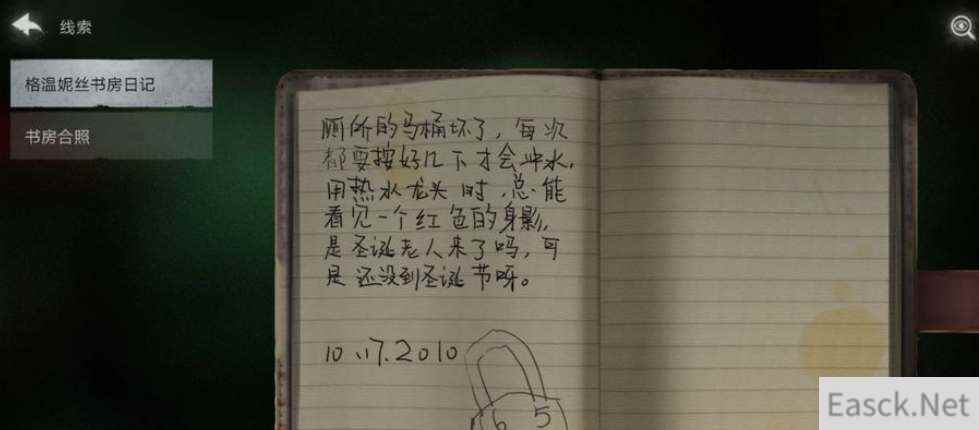 线索
格温妮丝书房日记
书房合照
厕所的马桶坏了，每次
都要按好几下才会冲水，
用热水龙头时，总能
看见一个红色的身影，
是圣诞老人来了吗，可
是还没到圣诞节呀。
10.17.2010
6 5
Easck.Net